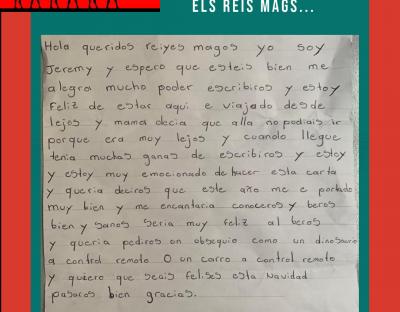 ELS REIS MAGS...
Hola queridos reiyes magos yo soy
Jeremy y espero que esteis bien me
alegra mucho poder escribiros y estoy
feliz de estar aqui e viajado desde
lejos y mama decia que alla no podiais ir
porque era muy lejos y cuando llegue
tenia muchas ganas de escribiros y estoy
y estoy muy emocionado de hacer esta carta
y queria deciros que este año me e portado
muy bien y me encantaria conoceros y beros
bien y sanos seria muy feliz al beros
y queria pediros un obsequio como un dinosaurio
a control remoto O un carro a control remoto
y quiero que seais felises esta Navidad
pasaros bien gracias.